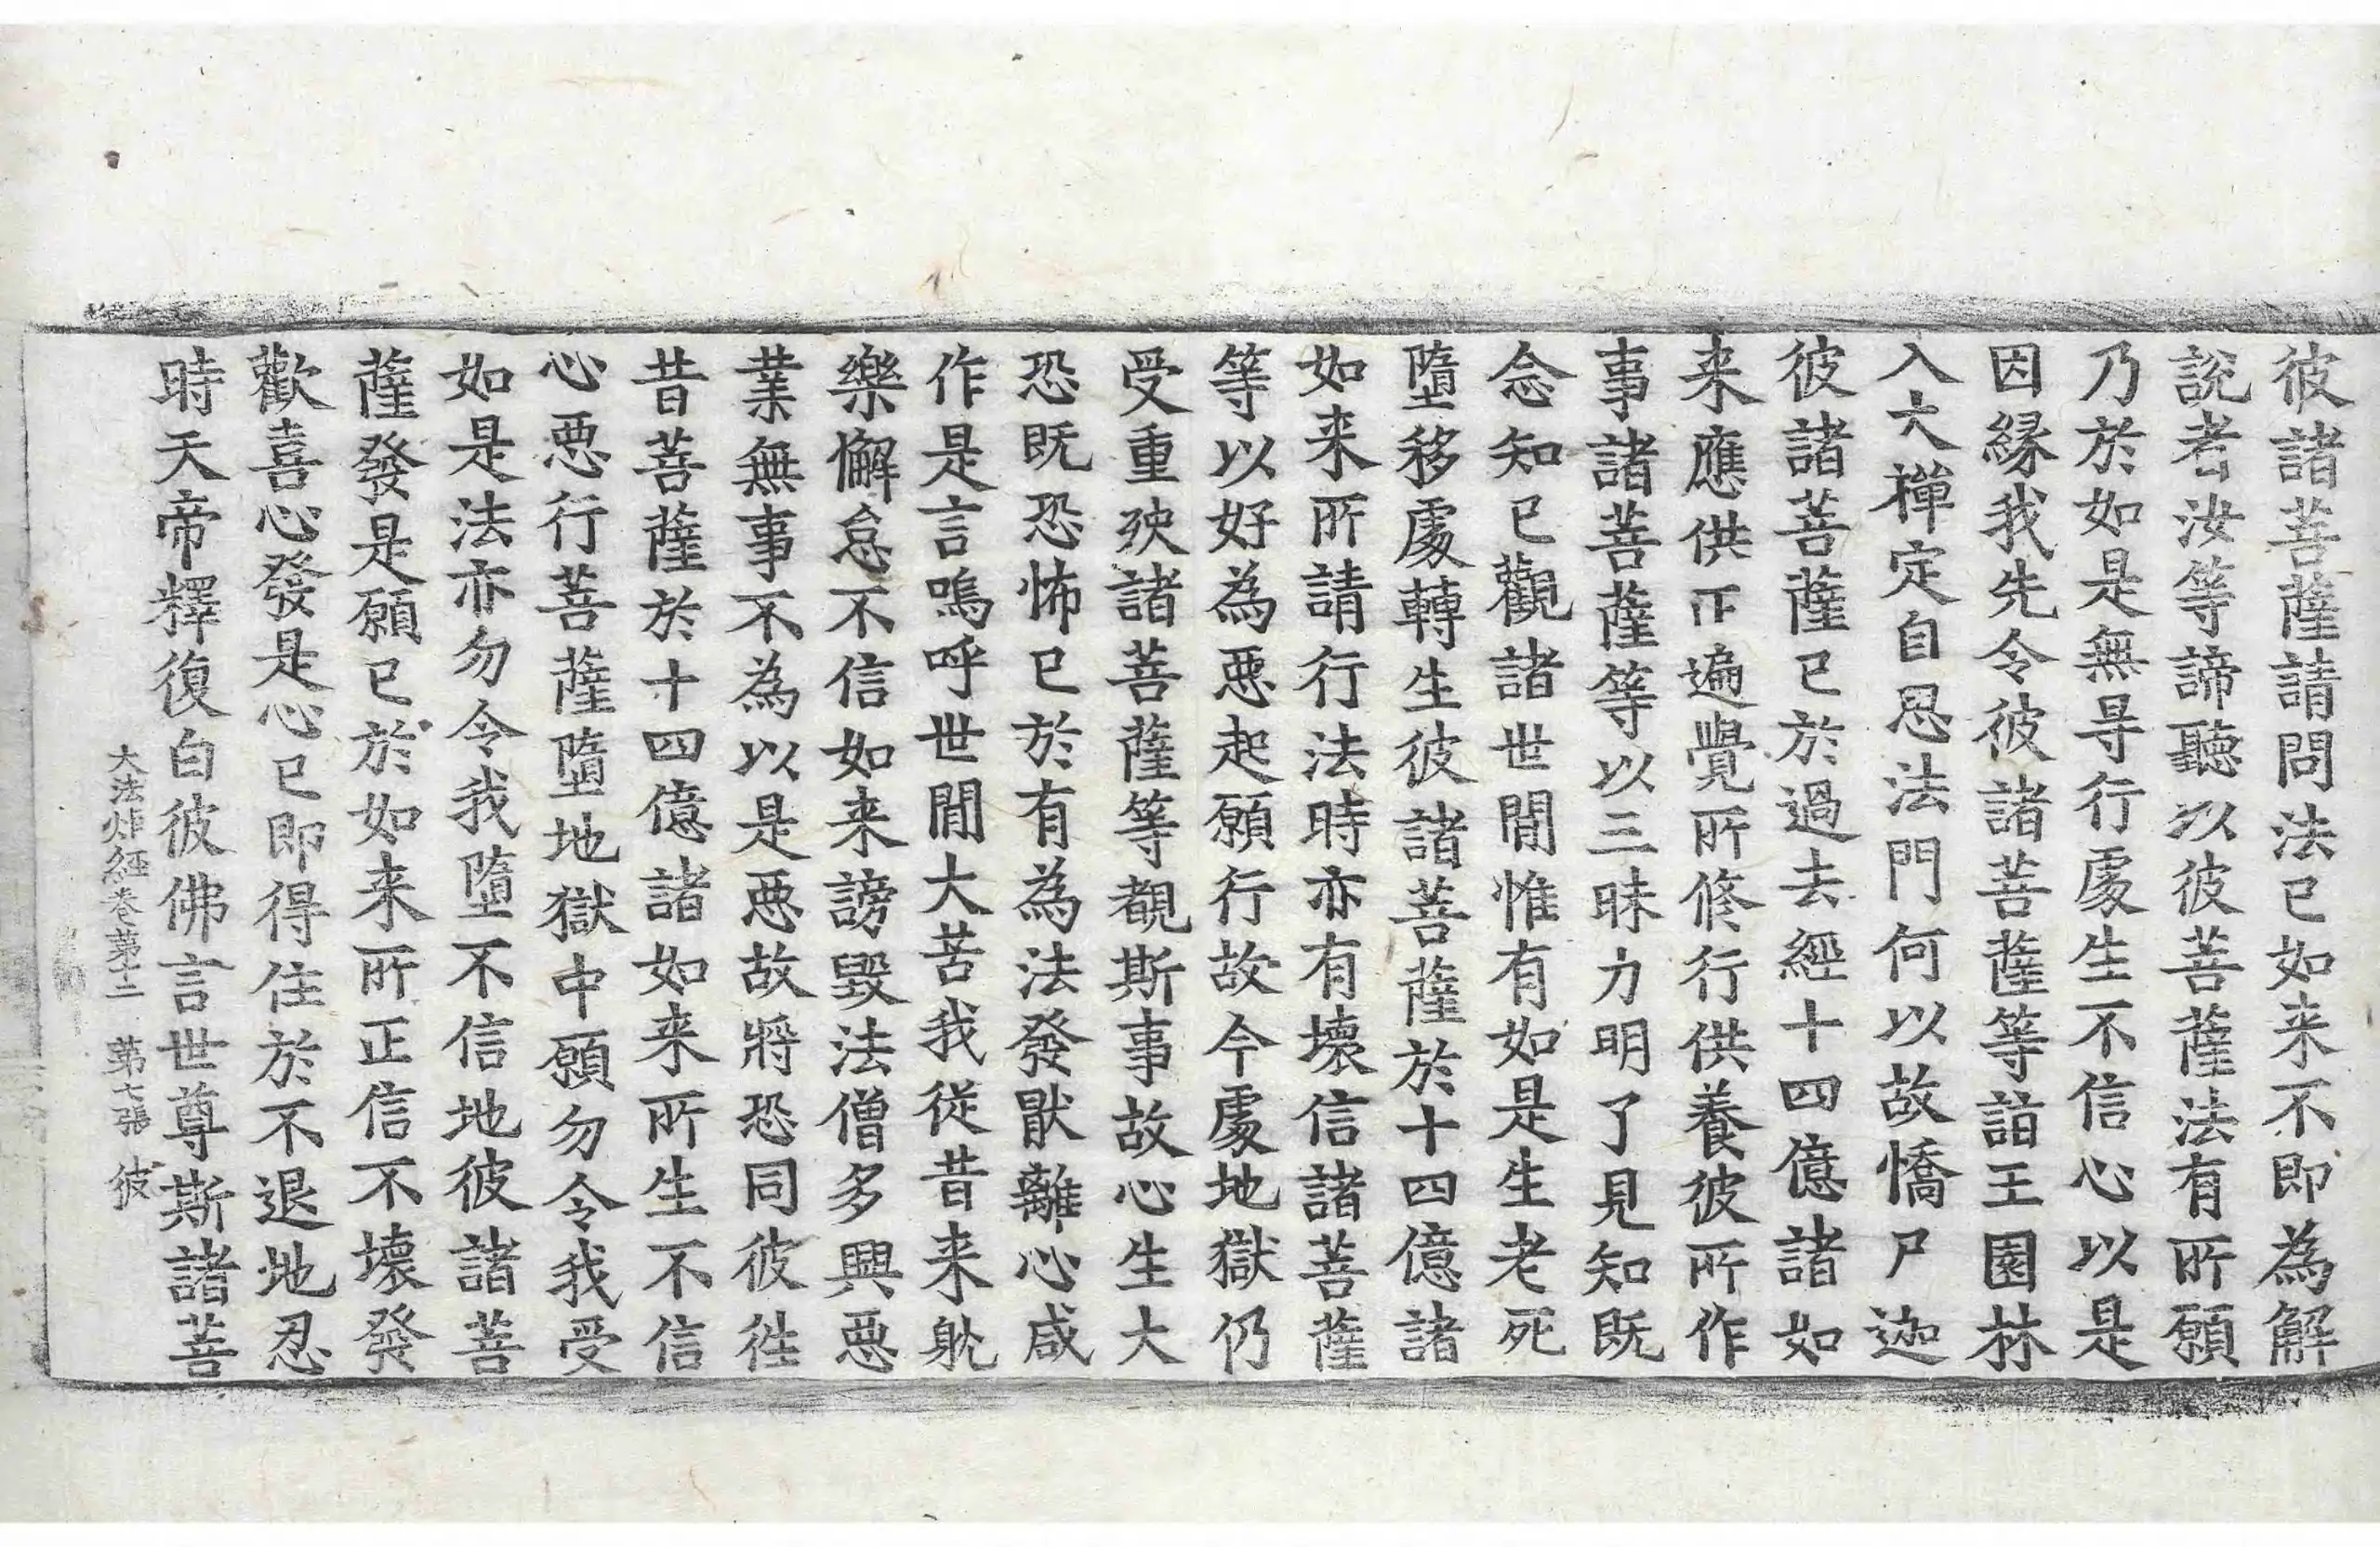 彼諸菩薩請問法已如来不即為解
說者汝等諦聽以彼菩薩法有所願
乃於如是無㝵行處生不信心以是
因緣我先令彼諸菩薩等詣王園林
入大禪定自思法門何以故憍尸迦
彼諸菩薩已於過去經十四億諸如
来應供正遍覺所修行供養彼所作
事諸菩薩等以三昧力明了見知既
念知已觀諸世間惟有如是生老死
墮移處轉生彼諸菩薩於十四億諸
如来所請行法時亦有壞信諸菩薩
等以好為惡起願行故今處地獄仍
受重殃諸菩薩等觀斯事故心生大
恐既恐怖已於有為法發猒離心咸
作是言嗚呼世間大苦我從昔来躭
樂懈怠不信如来謗毀法僧多興惡
業無事不為以是惡故將恐同彼徃
昔菩薩於十四億諸如来所生不信
心惡行菩薩墮地獄中願勿令我受
如是法亦勿令我墮不信地彼諸菩
薩發是願已於如来所正信不壞發
歡喜心發是心已即得住於不退地忍
時天帝釋復白彼佛言世尊斯諸菩
大法炬經卷第十二 第七張 彼